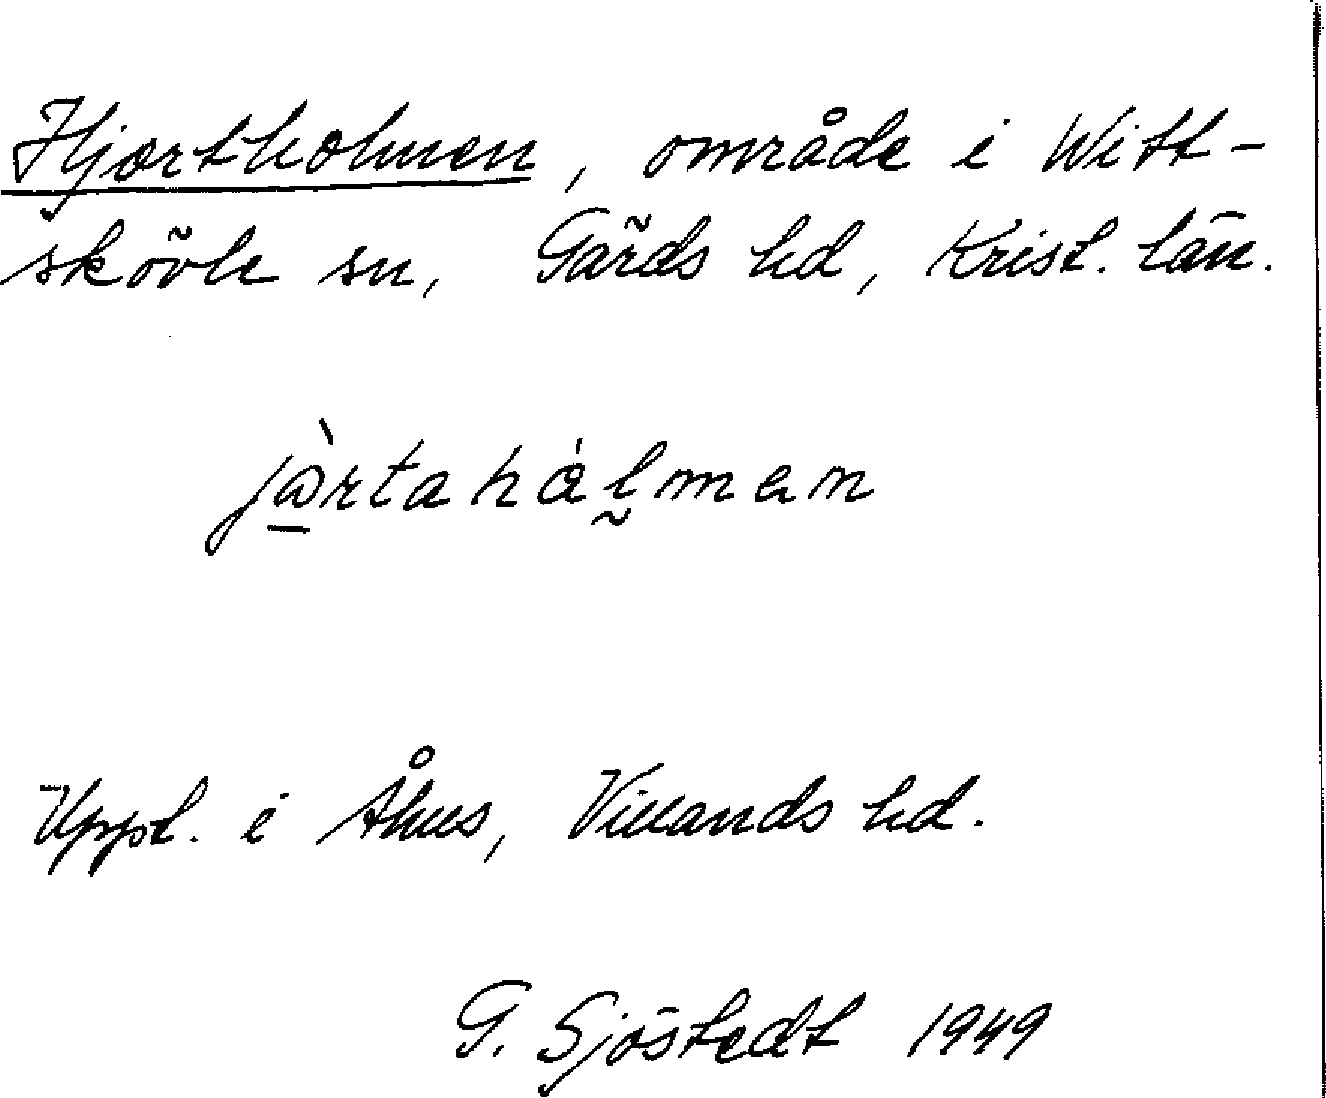 Hjortholmen, område i Witt-
skövle sn, Gärds hd, Krist. län.
jàrtahålmen
Uppt. i Åhus, Villands hd.
G. Sjöstedt 1949